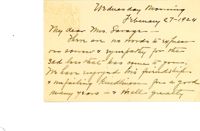 Wednesday Morning
February 27-1924
My dear Mrs. Savage-
There are no words to express
our sorrow & sympathy for the
sad loss that has come to you.
We have enjoyed his friendship
& unfailing kindliness for a good
many years - & shall greatly